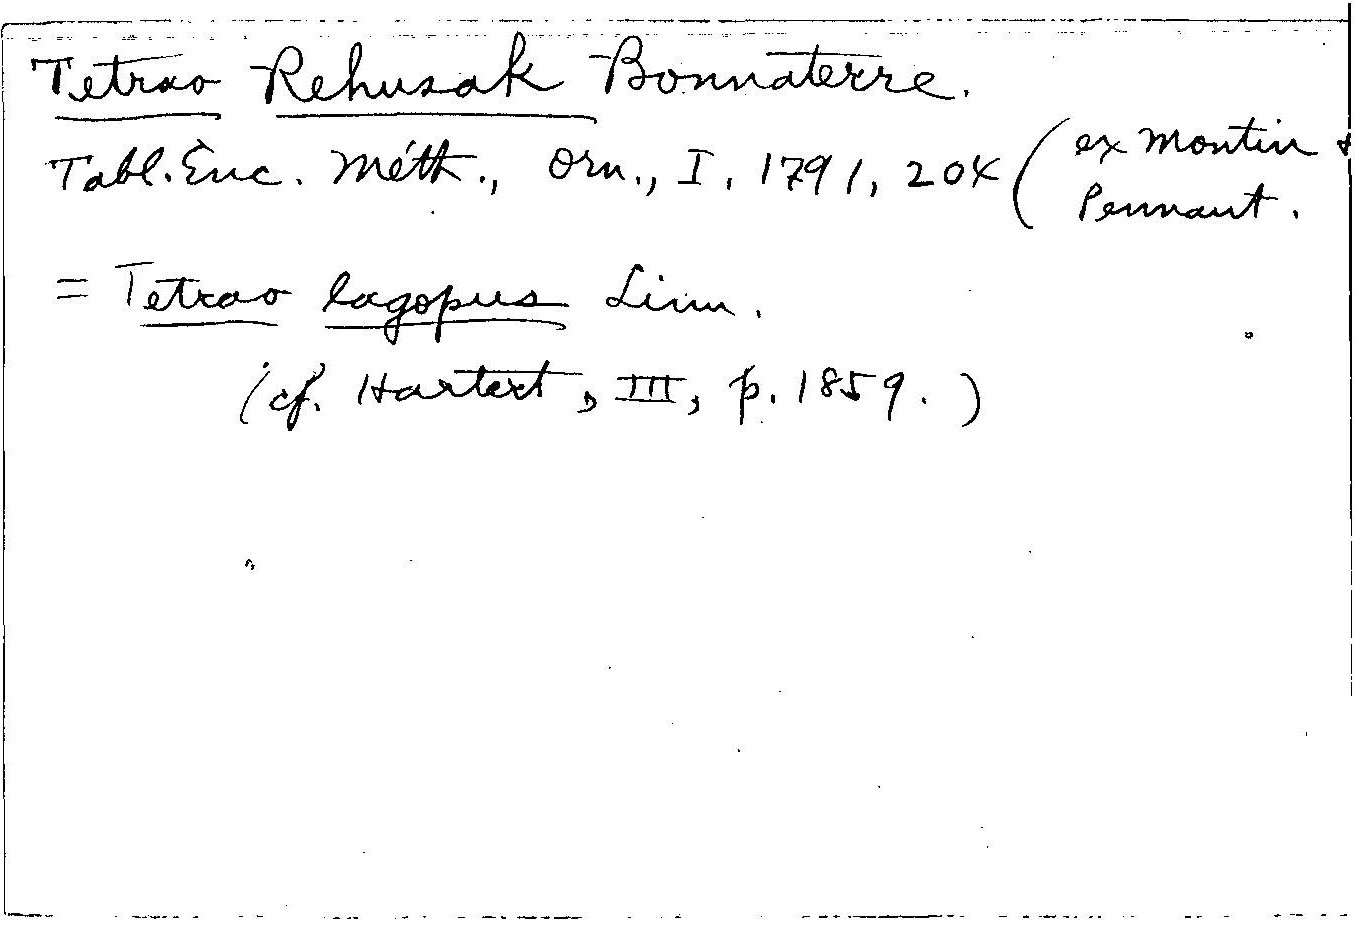 Tetrao Rehusak Bonnaterre.
Tabl. Enc. Méth., Orn., I, 1791, 204 (ex Montin &
Pennant.
= Tetrao lagopus Linn.
(cf. Hartert, III, p. 1859.)